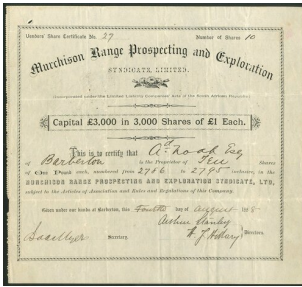 Vendors' Share Certificate No. 27 Number of Shares 10
Murchison Range Prospecting and Exploration
SYNDICATE, LIMITED.
Capital £3,000 in 3,000 Shares of £1 Each.
This is to certify that
of Barberton is the Proprietor of Ten Shares
of One Pound each, numbered from 2786 to 2795 inclusive, in the
MURCHISON RANGE PROSPECTING AND EXPLORATION SYNDICATE, LTD,
subject to the Articles of Association and Rules and Regulations of this Company.
Given under our hands at Barberton, this Fourth day of August 188
Arthur Stanley
Secretary. Directors.